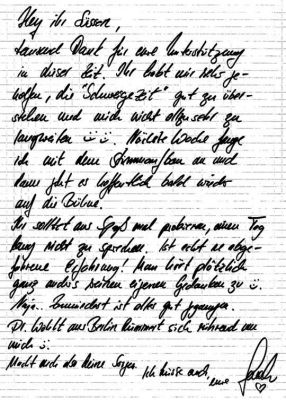 Hey ihr Süssen,
tausend Dank für eure Unterstützung
in dieser Zeit. Ihr habt mir sehr ge-
holfen, die "Schweigezeit" gut zu über-
stehen und mich nicht allzu sehr zu
langweilen ☺☺. Nächste Woche fange
ich mit dem Stimmaufbau an und
dann geht es hoffentlich bald wieder
auf die Bühne.
Ihr solltet aus Spaß mal probieren, einen Tag
lang nicht zu sprechen. Ist echt ne abge-
fahrene Erfahrung! Man hört plötzlich
ganz anders seinen eigenen Gedanken zu ☺.
Naja.. Zumindest ist alles gut gegangen.
Dr. Wohlt aus Berlin kümmert sich rührend um
mich ☺.
Macht euch da keine Sorgen.
Ich küsse euch,
eure Sarah